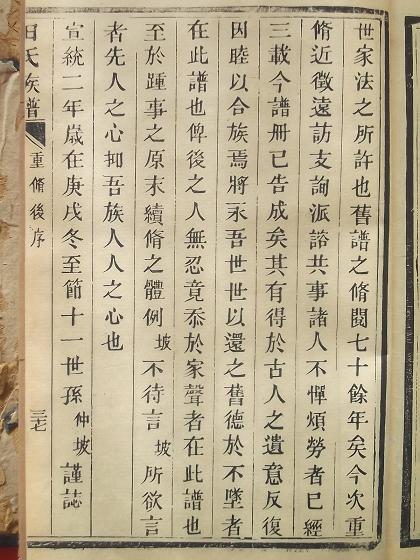 世家法之所許也舊譜之脩閱七十餘年矣今次重
脩近徵遠訪支詢派諮共事諸人不憚煩勞者已經
三載今譜冊已告成矣其有得於古人之遺意反復
因睦以合族焉將永吾世世以還之舊德於不墜者
在此譜也俾後之人無忍竟忝於家聲者在此譜也
至於踵事之原末續脩之體例坡不待言坡所欲言
者先人之心抑吾族人人之心也
宣統二年歲在庚戌冬至節十一世孫仲坡謹誌
氏族譜
重脩後序